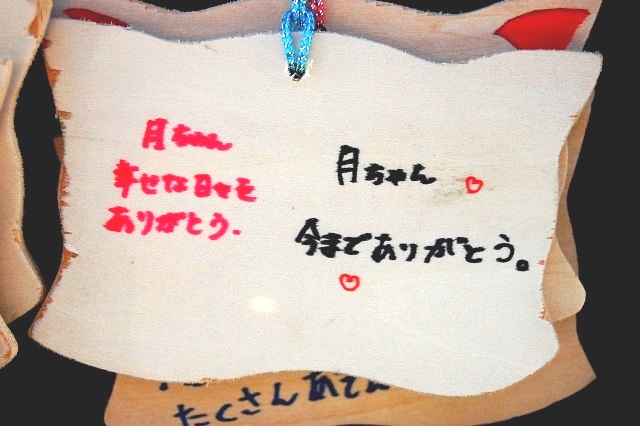 月ちゃん
幸せな日々を
ありがとう.
月ちゃん
今までありがとう。
たくさんあ